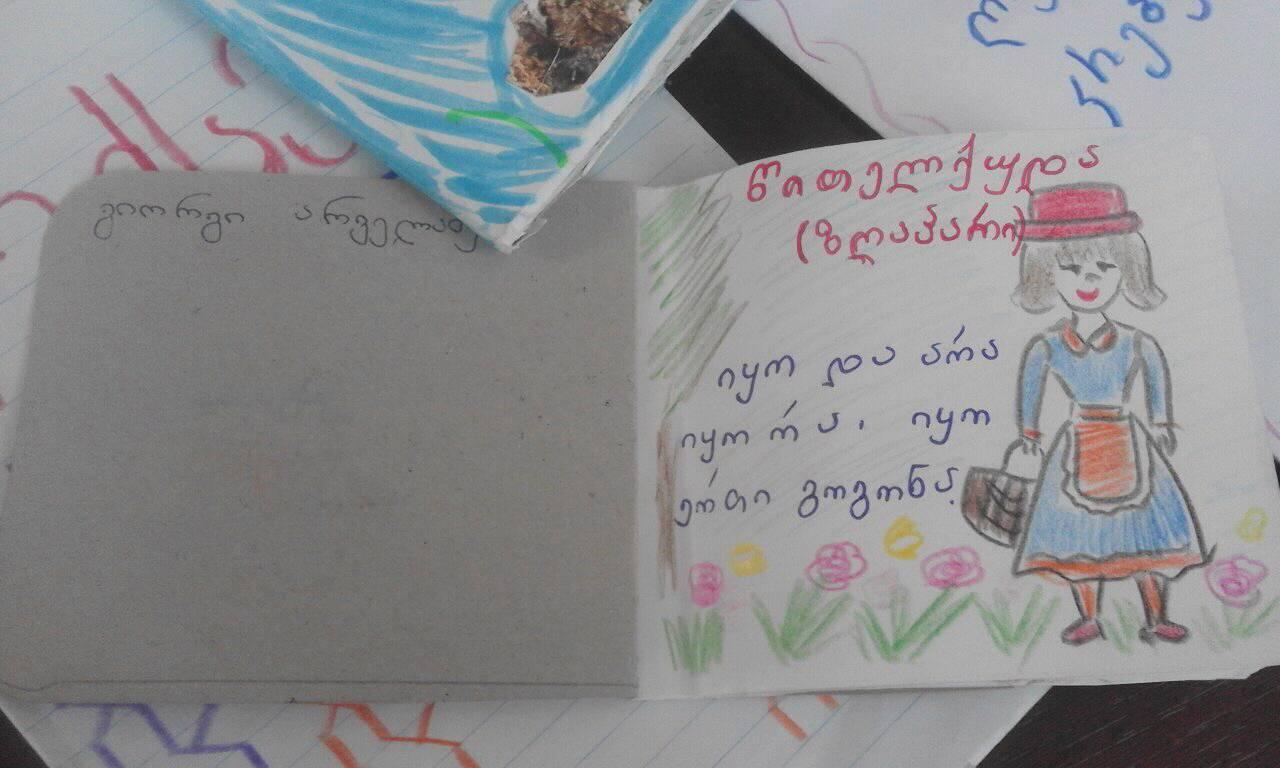 გიორგი არველაძე
წითელქუდა
(ზღაპარი)
იყო და არა
იყო რა. იყო
ერთი გოგონა.